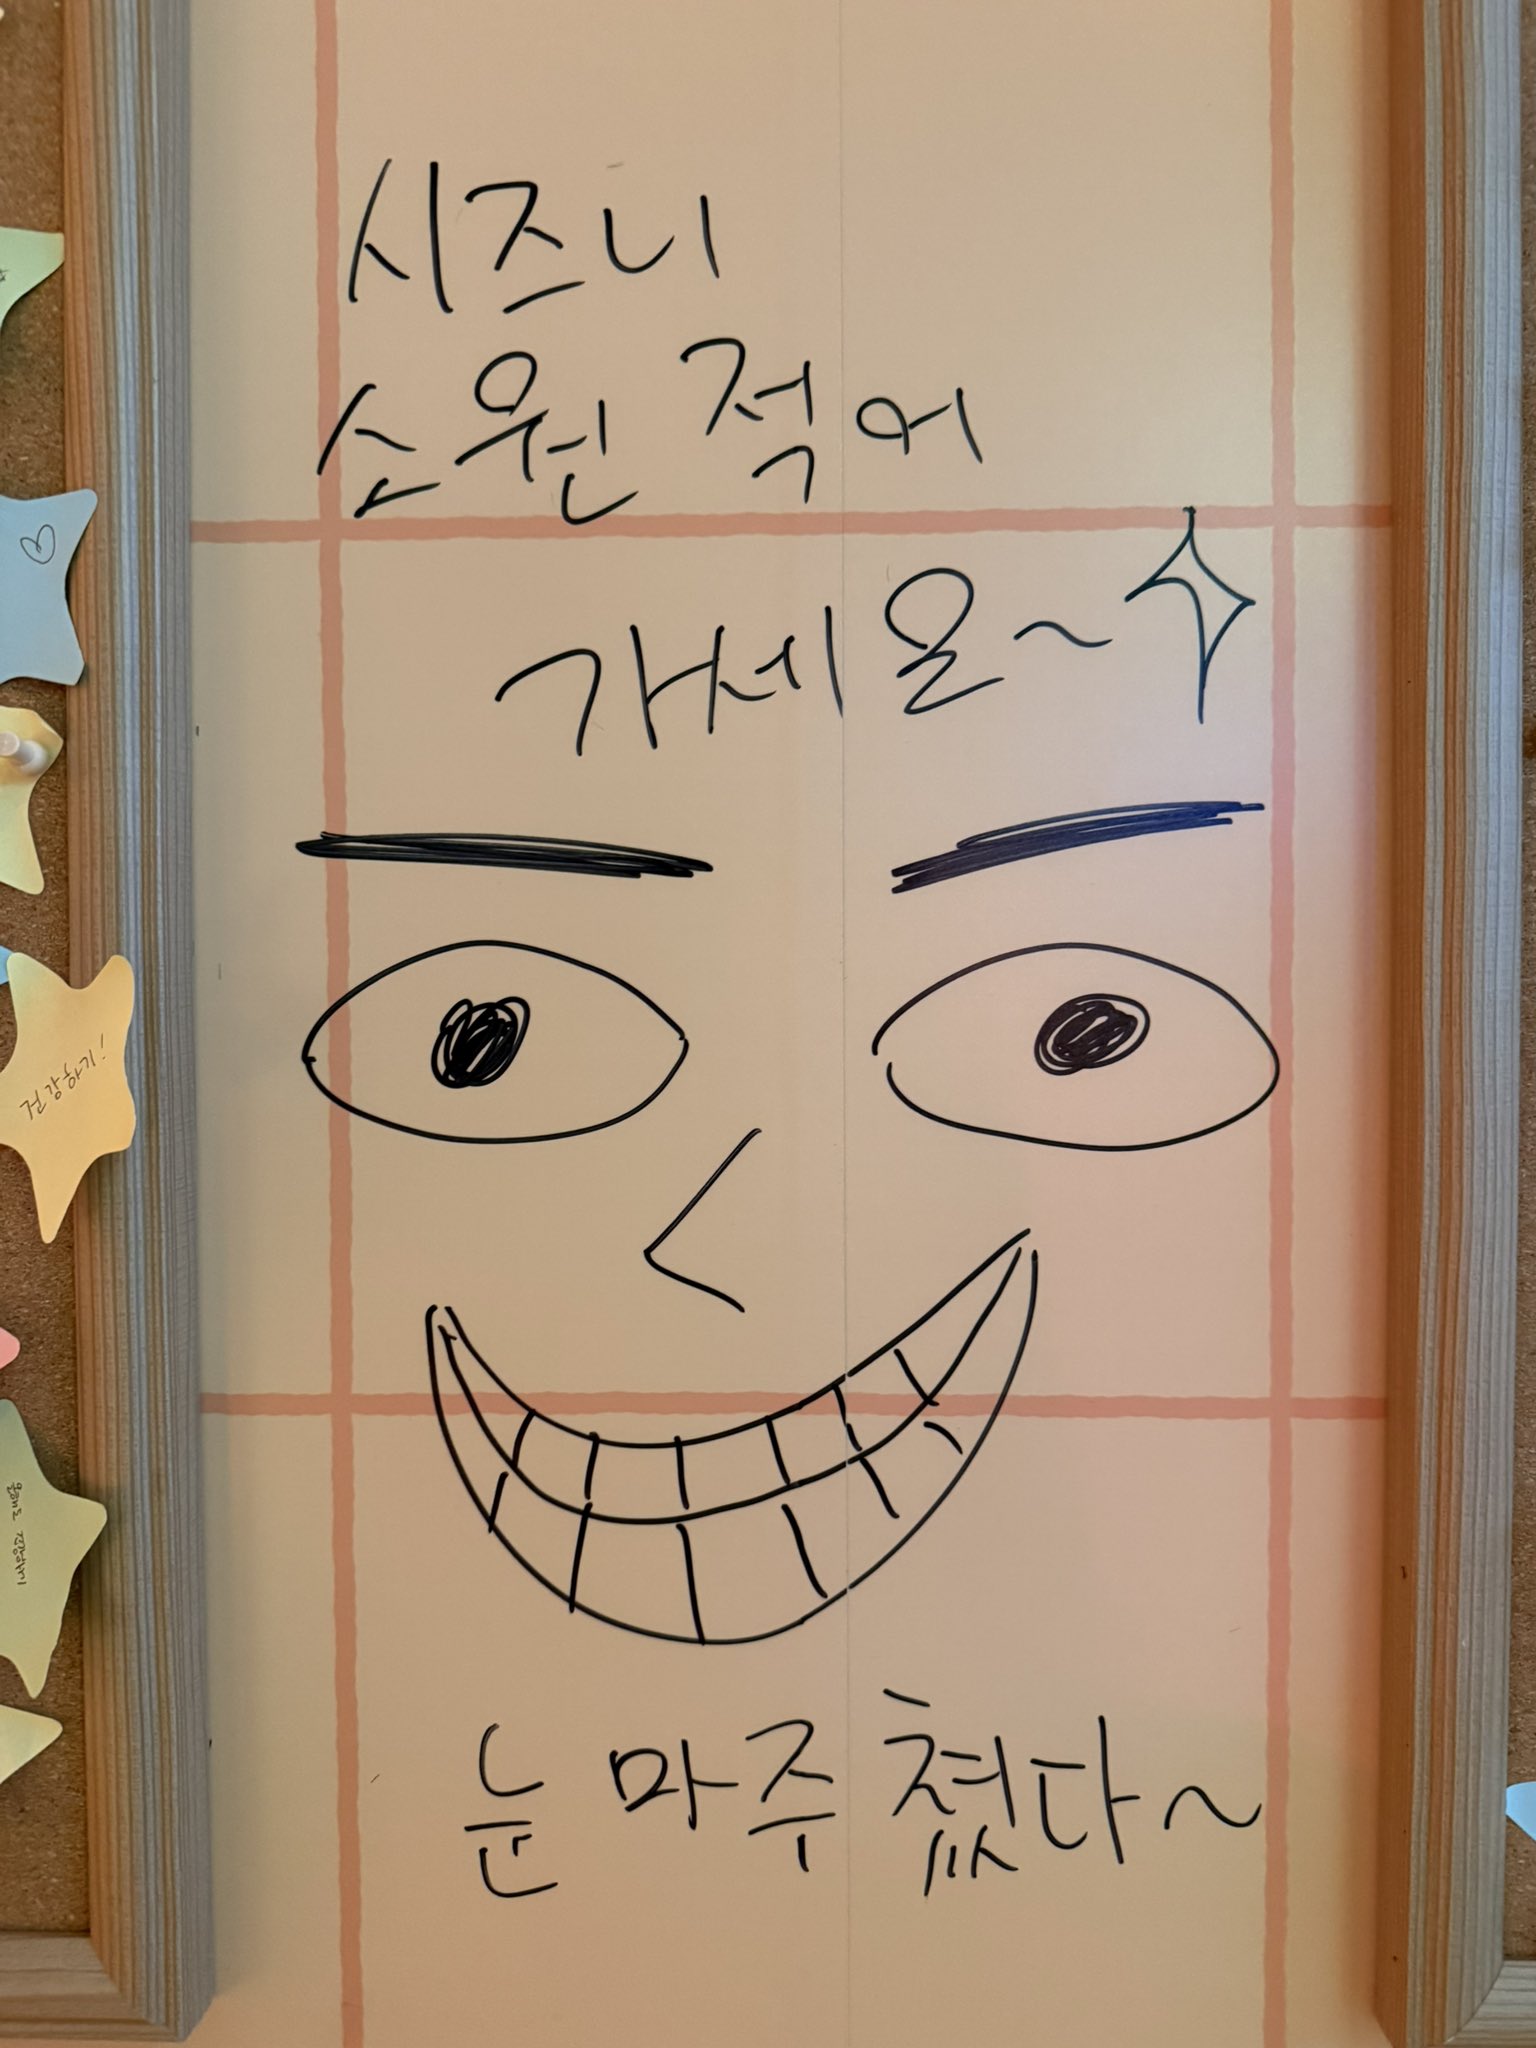 시즈니
소원 적어
가세욘~
눈 마주쳤다~
건강하기!